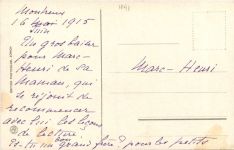 Montreux
16 Mai 1915
Un gros baiser
pour Marc-
Henri de sa
Maman, qui
se réjouit de
recommencer
avec lui les leçons
de lecture.
Es-tu un grand frère? pour les petits
Marc-Henri